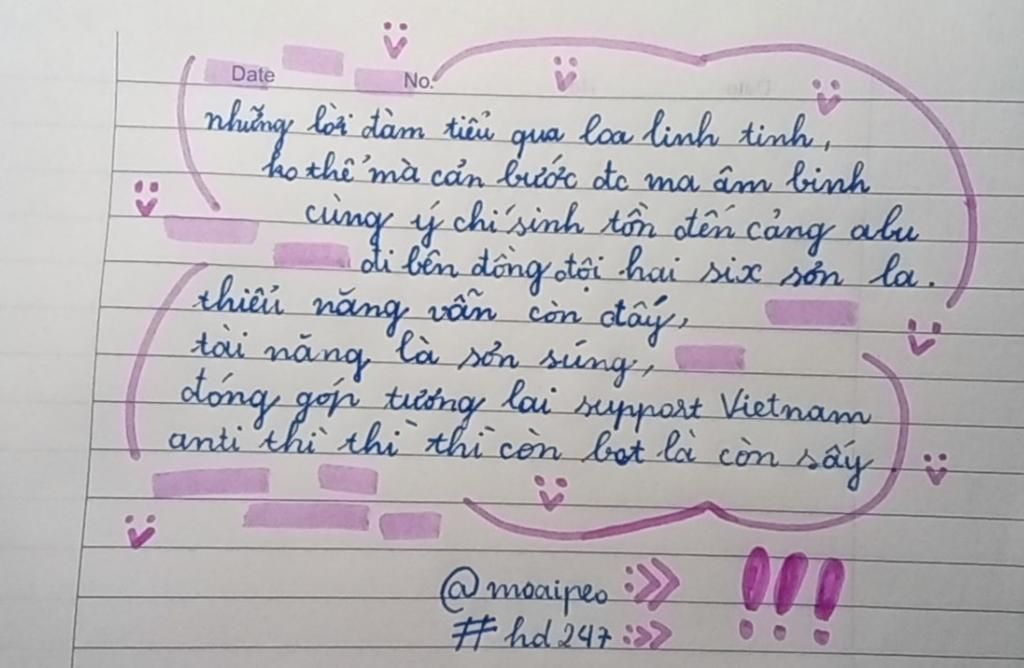 Date No.
những lời đàm tiếu qua loa linh tinh,
ko thể mà cản bước đc ma âm binh
cùng ý chí sinh tồn đến cảng abu
đi bên đồng đội hai six sơn la.
thiểu năng vẫn còn đấy,
tài năng là sơn súng,
đóng góp tương lai support Vietnam
anti thì thì thì còn bot là còn sấy
@moaipeo :>>
#hd247 :>>
!!!